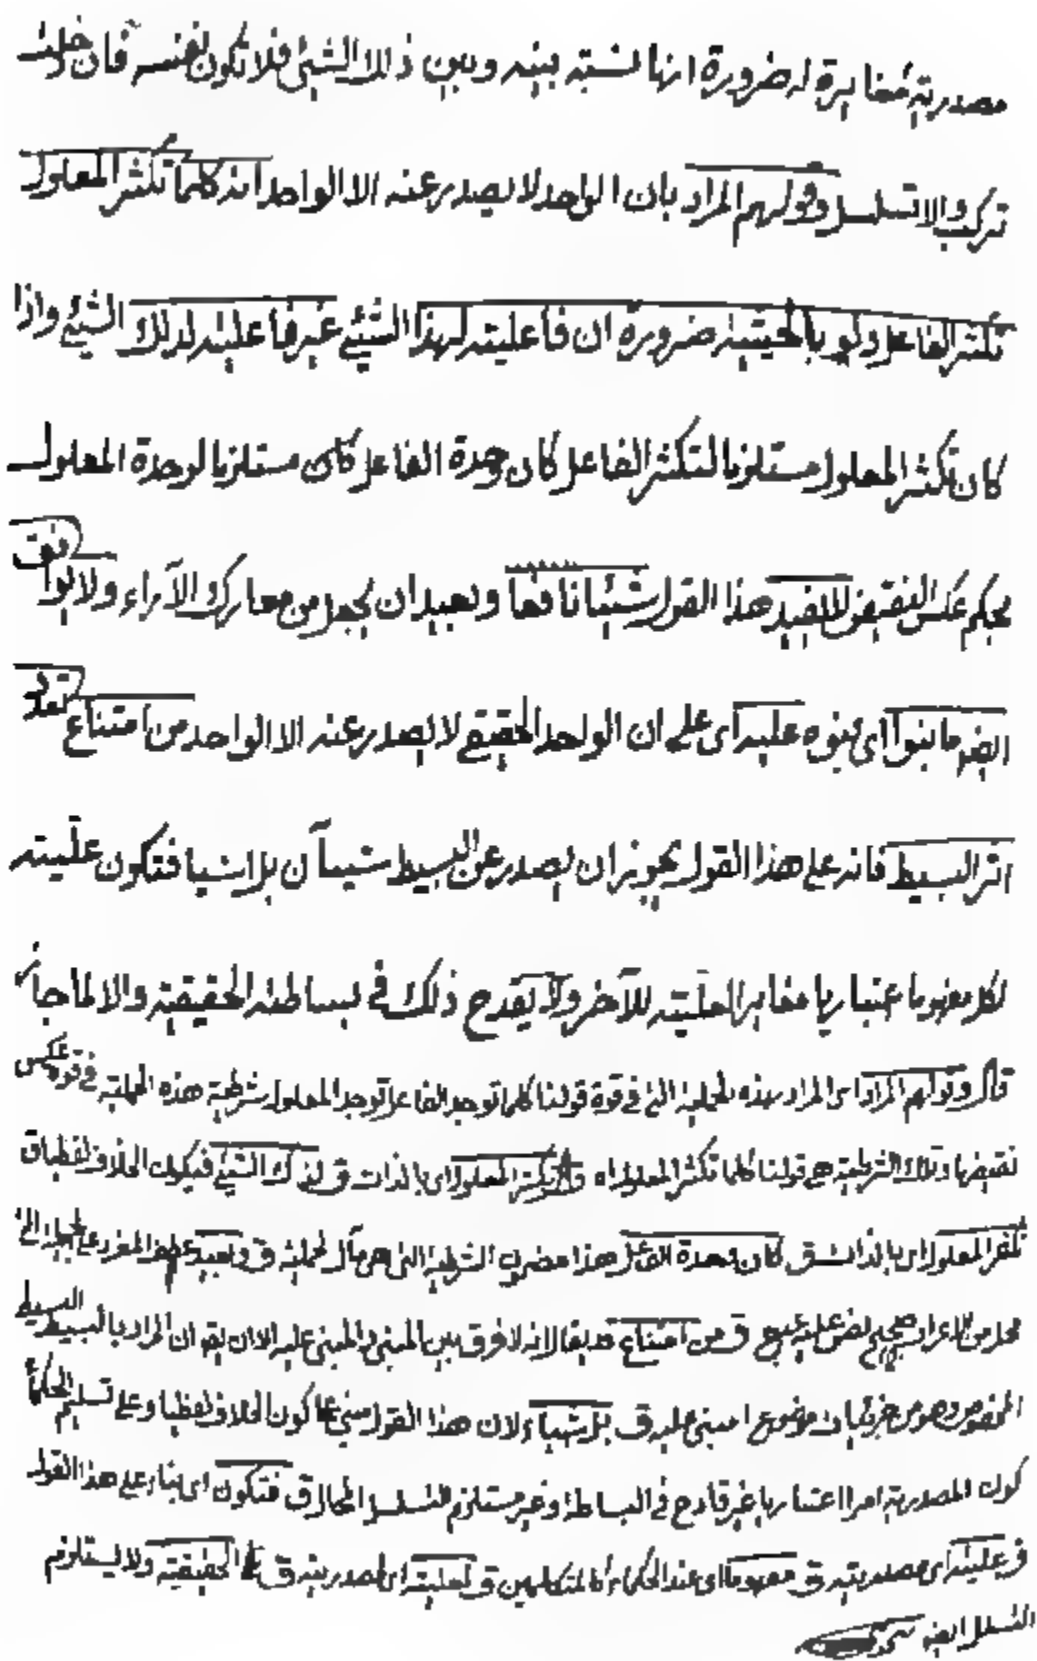 مصدريته مغايرة له ضرورة انها نسبته بينه وبين ذلك الشيء فلا تكون نفسه فان دخلت
تركب والا تسلسل وقولهم المراد بان الواحد لا يصدر عنه الا الواحد انه كلما تكثر المعلول
تكثر الفاعل ولو بالحيثية ضرورة ان فاعليته لهذا الشيء غير فاعليته لذلك الشيء واذا
كان تكثر المعلول مستلزما لتكثر الفاعل كان وحدة الفاعل كان مستلزما لوحدة المعلول
بحكم عكس النقيض لا يفيد هذا القول شيئا نافعا وبعيد ان يجعل من معارك الآراء ولا يوافق
ايضه ما بنوا اى بنوه عليه اى على ان الواحد الحقيقي لا يصدر عنه الا الواحد من امتناع تعدد
اثر البسيط فانه على هذا القول يجوز ان يصدر عن البسيط شيئآن بل اشيا فتكون عليته
لكل مفهوما اعتباريا مغايرا لعليته للآخر ولا يقدح ذلك في بساطته الحقيقية والا لما جاز
قال وقولهم المراد اى المراد بهذه الحملية الخ في قوة قولنا كلما توحد الفاعل توحد المعلول شرطية هذه الحملية في قوة عكس
نقيضها وتلك الشرطية هى قولنا كلما تكثر المعلول اه تكثر المعلول اى بالذات ق لذلك الشيء فيكون الخلاف لفظيا ق
تكثر المعلول اى بالذات ق كان وحدة الفاعل هذا مضمون الشرطية التى هى مآل الحملية ق وبعيد عطف المفرد على الجملة التى
محل من الاعراب صحيح ق من امتناع لانه لا فرق بين المبنى والمبنى عليه الا ان يقه ان المراد بالبسيط البسيط
المخصوص وهو من جزئيات موضوع المبنى عليه ق بل اشياء لان هذا القول مبنى على كون الخلاف لفظيا وعلى تسليم الحكماء
كون المصدرية امرا اعتباريا غير قادح في البساطة وغير مستلزم للتسلسل المحال ق فتكون اى بناء على هذا القول
ق عليته اى مصدريته ق مفهوما اى عند الحكماء كالمتكلمين ق لعليته اى لمصدريته ق الحقيقية ولا يستلزم
التسلسل ايضه